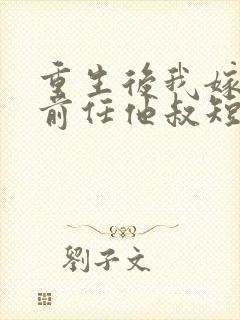 重生後我嫁
前任他叔短
劉子文